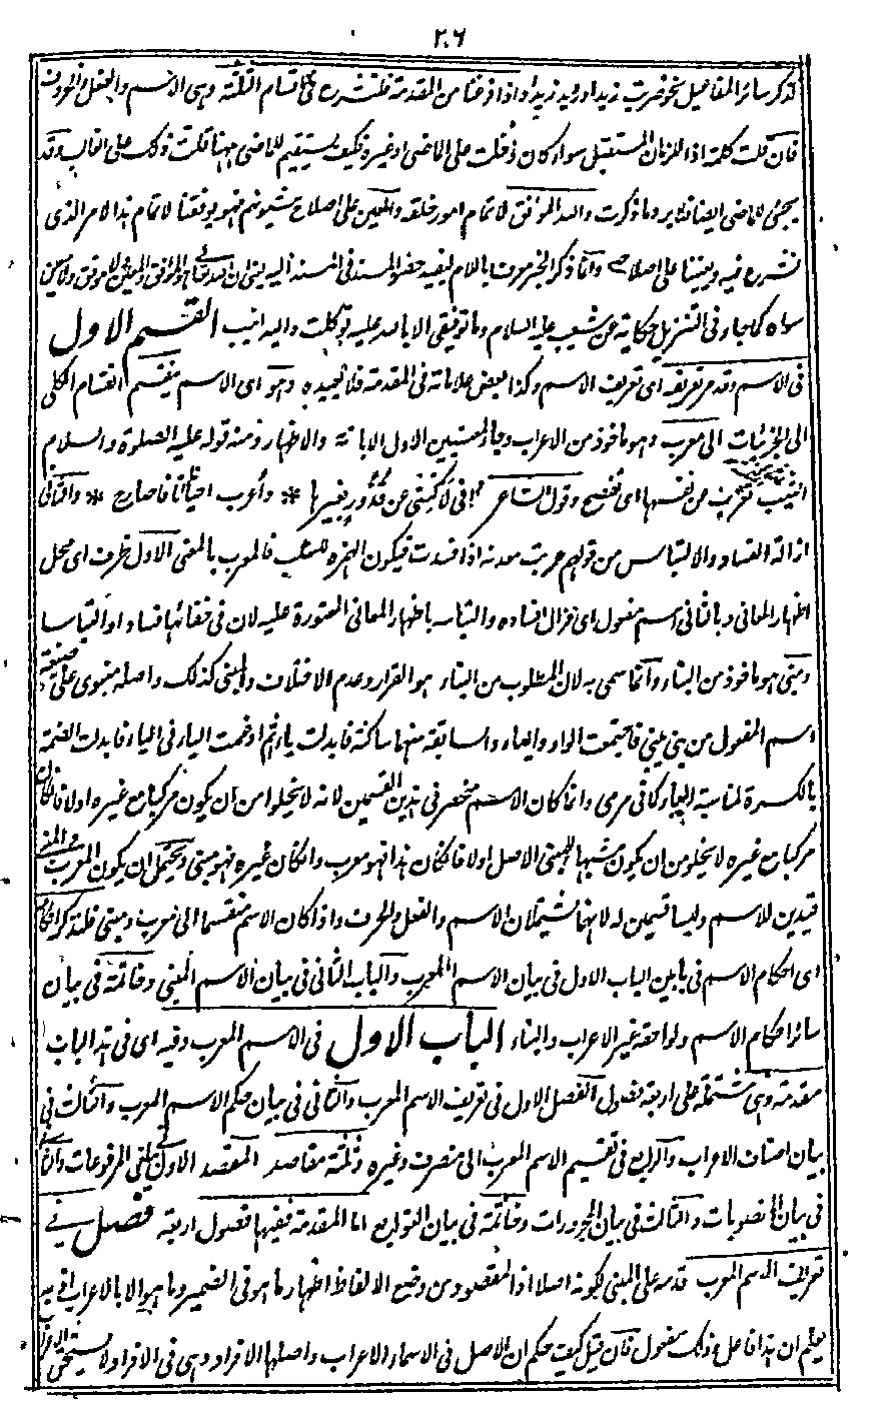 ٢٠٦
تذكر سائر المفاعيل نحو ضربت زيدا وزيد زيدا واذا فرغنا من المقدمة فلنشرع فى اقسام الثلثة وهى الاسم والفعل والحرف
فان قلت كلمة اذا للزمان المستقبل سواء كان دخلت على الماضى او غيره فكيف يستقيم للماضى ههنا قلت ذلك على الغالب وقد
يجئ للماضى ايضا فلا يرد ما ذكرت والله الموفق لاتمام امور خلقه والمعين على اصلاح شيونهم فهو يوفقنا لاتمام هذا الامر الذى
نشرع فيه ويعيننا على اصلاحه وانما ذكر الخبر معرفا باللام ليفيد حصر المسند فى المسند اليه يعنى ان الله تعالى هو الموفق والمعين لا موفق ولا معين
سواه كما جاء فى التنزيل حكاية عن شعيب عليه السلام وما توفيقى الا بالله عليه توكلت واليه انيب القسم الاول
فى الاسم وقد مر تعريفه اى تعريف الاسم وكذا بعض علاماته فى المقدمة فلا نعيده وهو اى الاسم ينقسم انقسام الكلى
الى الجزئيات الى معرب وهو ماخوذ من الاعراب وجاء لمعنيين الاول الابانة والاظهار ومنه قوله عليه الصلوة والسلام
الثيب تعرب عن نفسها اى تفصح وقول الشاعر انى لاكنى عن قذور بغيرها * واُعرب احيانا فاصارح * والثانى
ازالة الفساد والالتباس من قولهم عربت معدته اذا فسدت فيكون الهمزة للسلب فالمعرب بالمعنى الاول ظرف اى محل
اظهار المعانى وبالثانى اسم مفعول اى مزال افساده والتباسه باظهار المعانى المعتورة عليه لان فى خفائها فسادا والتباسا
ومبنى هو ماخوذ من البناء وانما سمى به لان المطلوب من البناء هو القرار وعدم الاختلاف والمبنى كذلك واصله مبنوى على صيغة
اسم المفعول من بنى يبنى فاجتمعت الواو والياء والسابقة منهما ساكنة فابدلت ياء ثم ادغمت الياء فى الياء فابدلت الضمة
بالكسرة لمناسبة الياء كما فى مرمى وانما كان الاسم منحصر فى هذين القسمين لانه لا يخلوا من ان يكون مركبا مع غيره اولا فان كان
مركبا مع غيره لا يخلو من ان يكون مشبها لمبنى الاصل اولا فان كان هذا فهو معرب وان كان غيره فهو مبنى ويحتمل ان يكون المعرب والمبنى
قيدين للاسم وليسا قسمين له لانهما يشتملان الاسم والفعل والحرف واذا كان الاسم منقسما الى معرب ومبنى فلنذكر احكامه
اى احكام الاسم فى بابين الباب الاول فى بيان الاسم المعرب والباب الثانى فى بيان الاسم المبنى وخاتمة فى بيان
سائر احكام الاسم ولواحقه غير الاعراب والبناء الباب الاول فى الاسم المعرب وفيه اى فى هذا الباب
مقدمة وهى مشتملة على اربعة فصول الفصل الاول فى تعريف الاسم المعرب والثانى فى بيان حكم الاسم المعرب والثالث فى
بيان اصناف الاعراب والرابع فى تقسيم الاسم المعرب الى منصرف وغيره وثلثة مقاصد المقصد الاول فى المرفوعات والثانى
فى بيان المنصوبات والثالث فى بيان المجرورات وخاتمة فى بيان التوابع اما المقدمة ففيها فصول اربعة فصل فى
تعريف الاسم المعرب قدمه على المبنى لكونه اصلا اذ المقصود من وضع الالفاظ اظهار ما هو فى الضمير وما هو الا بالاعراب اذ به
يعلم ان هذا فاعل وذلك مفعول فان قيل كيف حكم ان الاصل فى الاسماء الاعراب واصلها الافراد وهى فى الافراد لا يستحق الاعراب